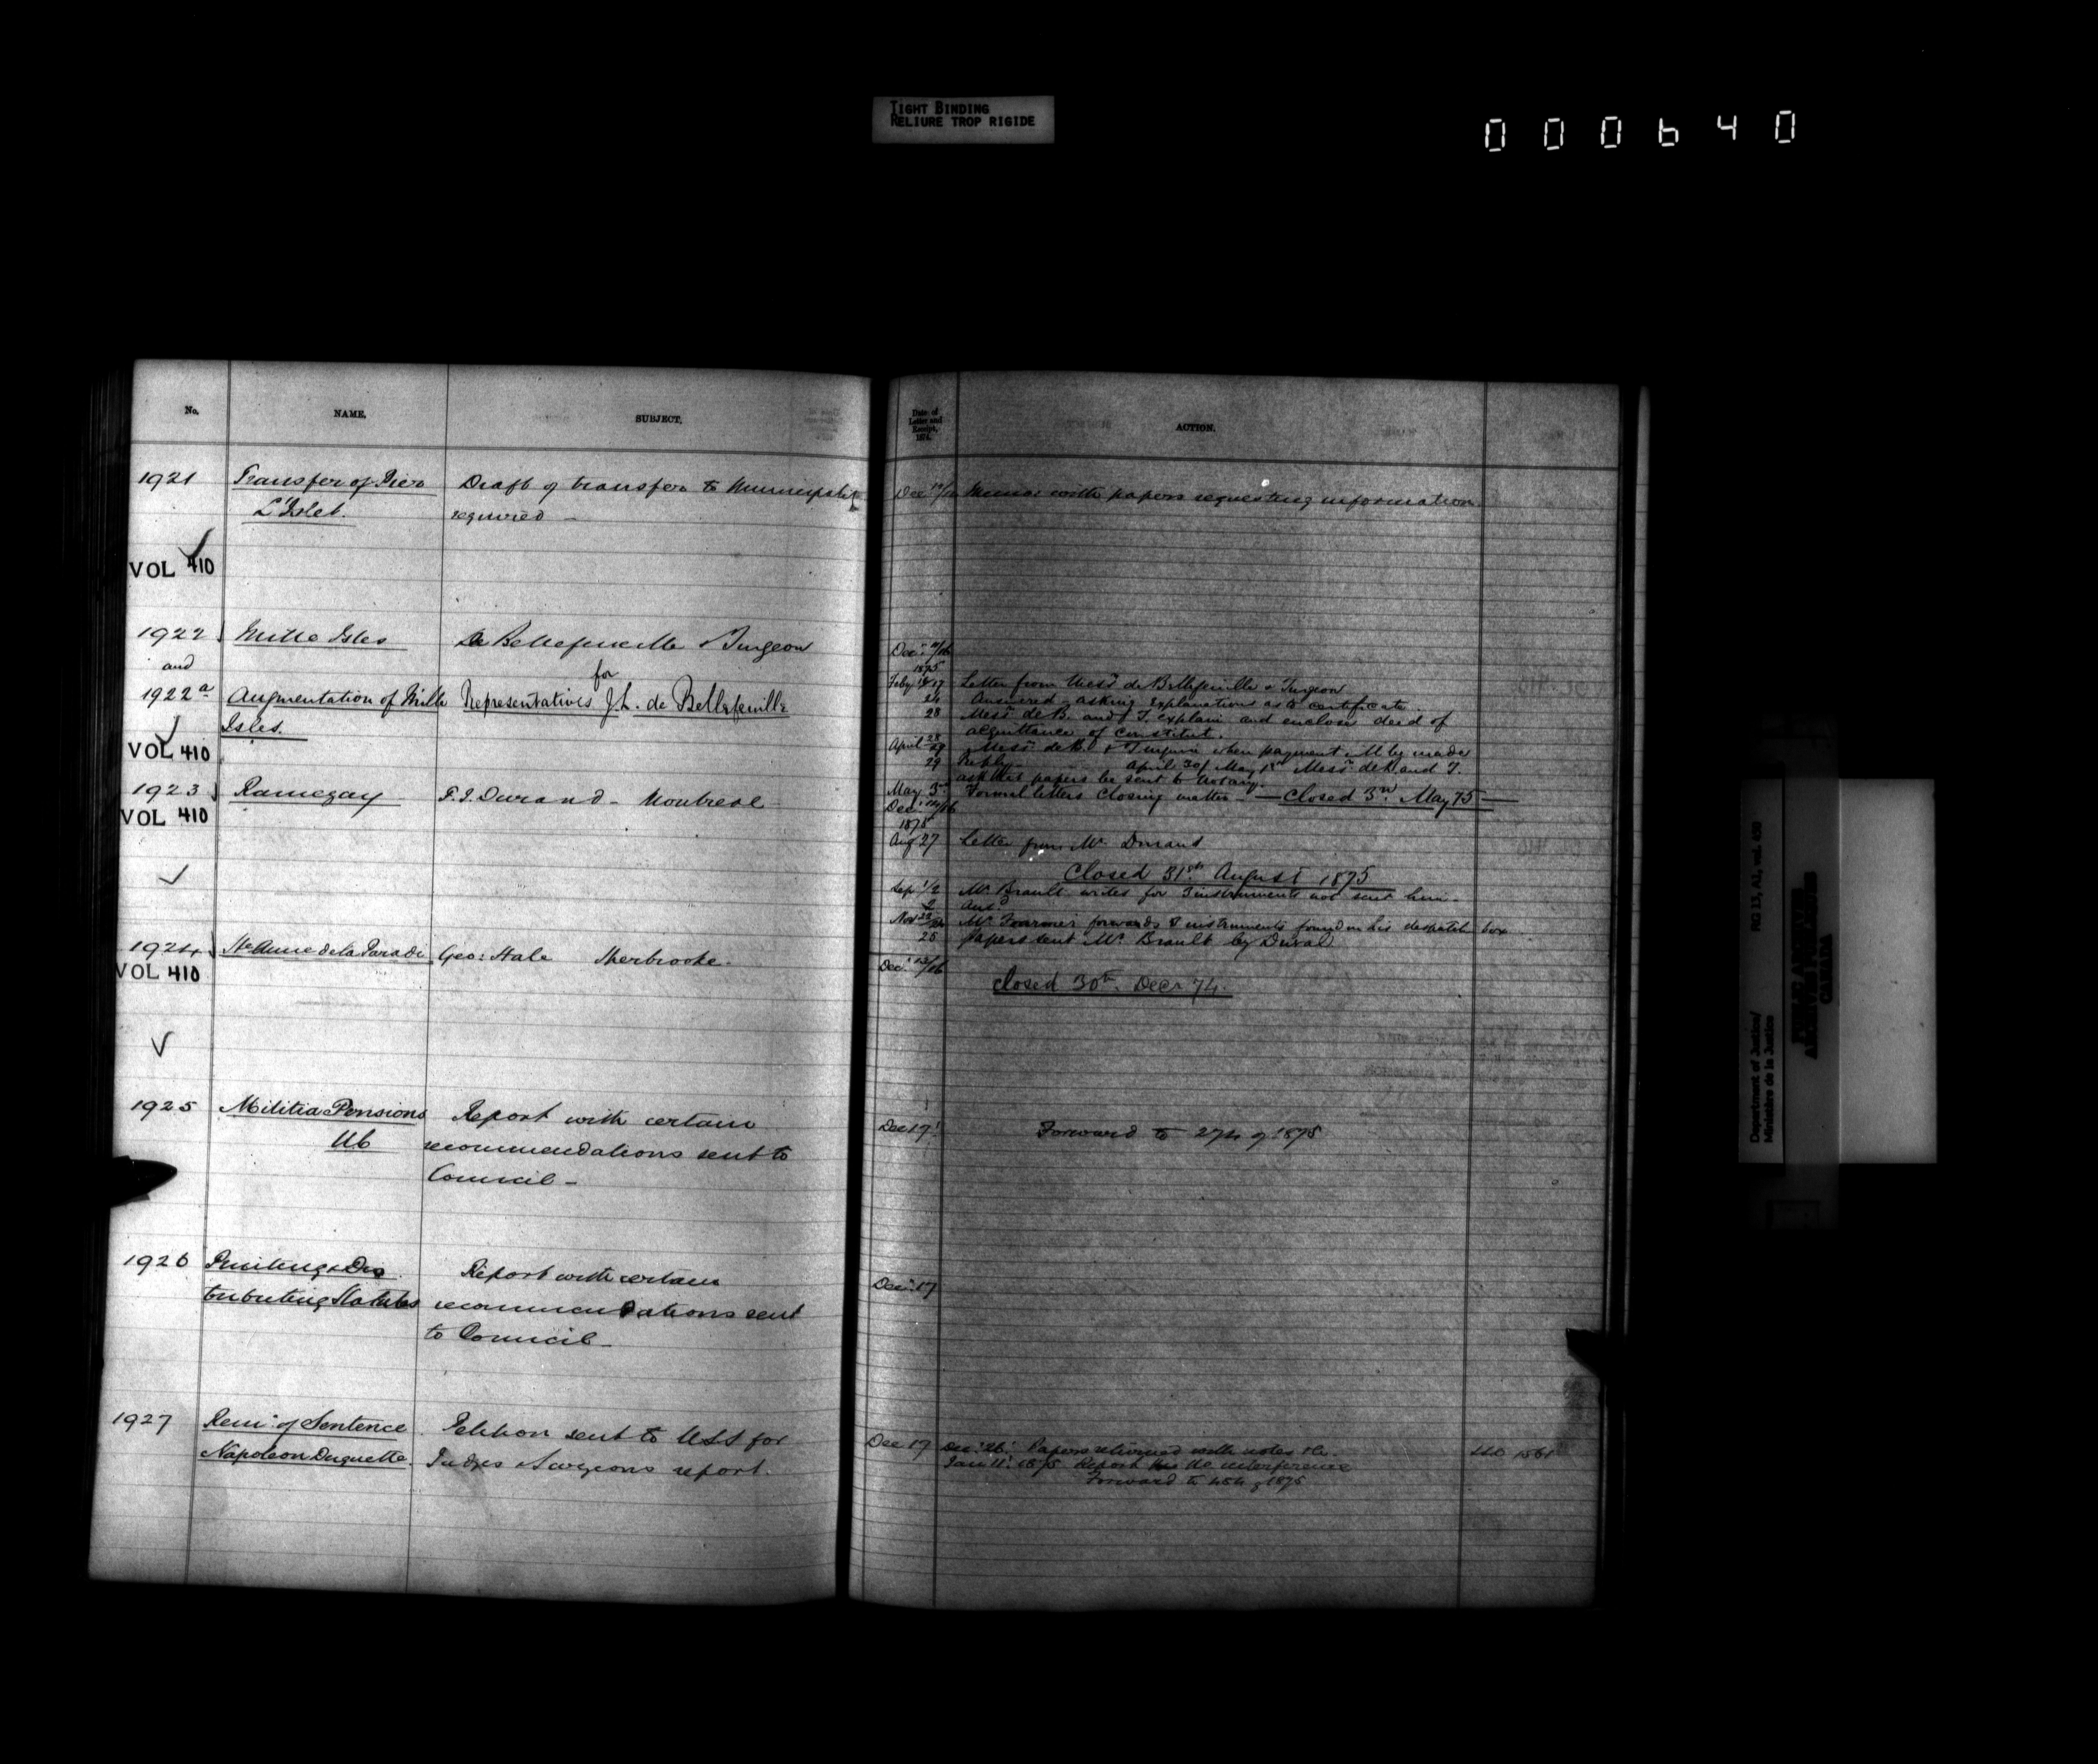 TIGHT BINDING
RELIURE TROP RIGIDE
000640
No.
NAME.
SUBJECT.
Date of Letter and Receipt, 1874.
ACTION.
1921
Transfer of Pier
L'Islet.
Draft of transfer to Municipality
required -
Dec
Memo with papers requesting information
VOL 410
1922
and
1922 a
Mille Isles
Augmentation of Mille
Isles.
De Bellefeuille & Turgeon
for
Representatives J.L. de Bellefeuille
VOL 410
Dec.
1875
Feby 17
Letter from Messrs de Bellefeuille & Turgeon
24 Answered asking explanations as to certificate.
28 Messrs de B. and T. explain and enclose deed of
acquittance of constitut.
April 28/29 Messrs de B. & T. inquire when payment will be made
29 Reply - April 30/ May 1st Messrs de B. and T.
ask that papers be sent to Notary.
May 3rd Formal letters closing matter - Closed 3rd May 75
1923
VOL 410
Ramezay
F.J. Durand - Montreal
Dec.
1875
Aug 27 Letter from Mr Durand
Closed 31st August 1875
Sep 1/2 Mr Brault writes for instruments not sent him -
2 Ans.
Nov Mr Fournier forwards instruments found in his despatch box
25 Papers sent Mr Brault by Duval
1924
VOL 410
Ste Anne de la Parade
Geo: Hale Sherbrooke -
Dec.
Closed 30th Decr 74.
1925
Militia Pensions
UC
Report with certain
recommendations sent to
Council -
Dec 17
Forward to 274 of 1875
1926
Printing & Dis
tributing Statutes
Report with certain
recommendations sent
to Council -
Dec. 17
1927
Remn. of Sentence
Napoleon Duquette.
Petition sent to USS for
Judges & Surgeons report.
Dec 17
Dec. 26. Papers returned with notes &c.
Jan 11. 1875 Report no interference
Forward to of 1875
Department of Justice/
Ministère de la Justice
RG 13, A2, vol. 450
PUBLIC ARCHIVES
ARCHIVES PUBLIQUES
CANADA